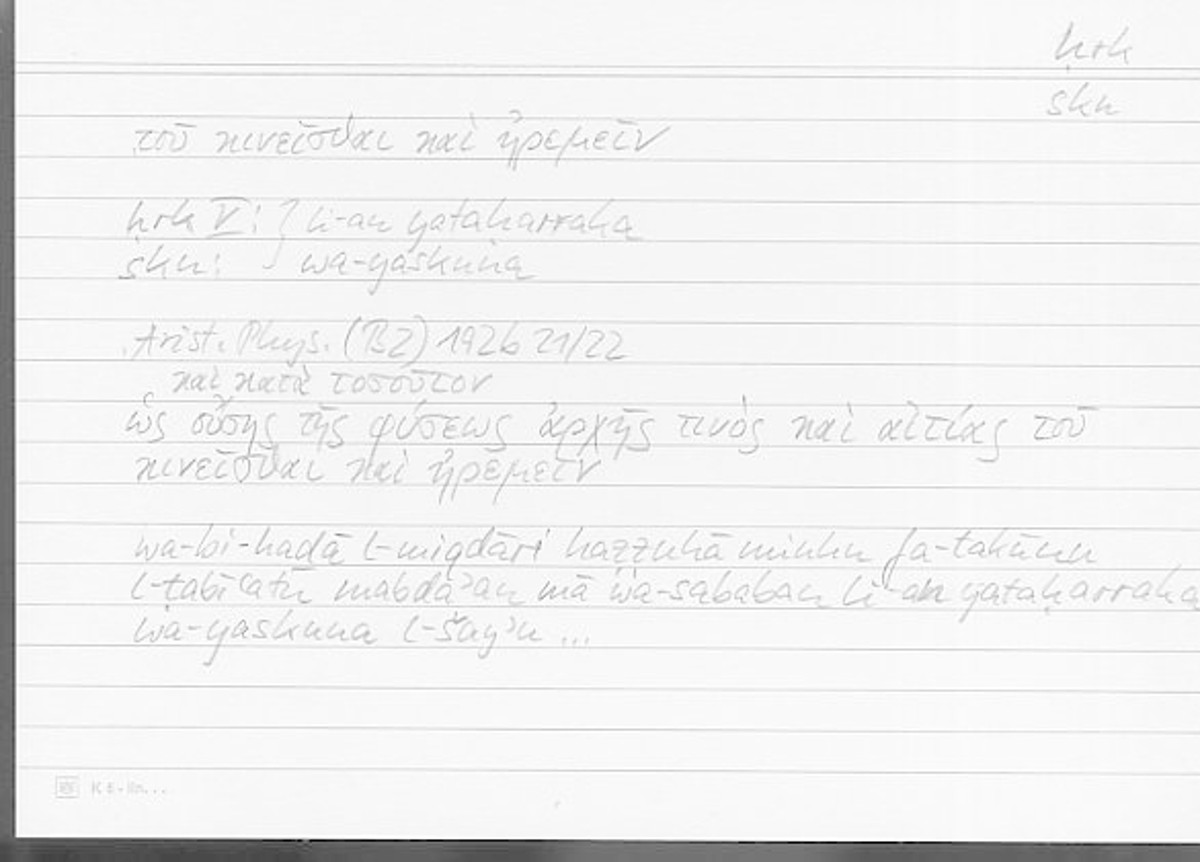 ḥrk
skn
τοῦ κινεῖσθαι καὶ ἠρεμεῖν
ḥrk V: } li-an yataḥarraka
skn: wa-yaskuna
Arist. Phys. (B2) 192b 21/22
καὶ κατὰ τοσοῦτον
ὡς οὔσης τῆς φύσεως ἀρχῆς τινὸς καὶ αἰτίας τοῦ
κινεῖσθαι καὶ ἠρεμεῖν
wa-bi-hadā l-miqdāri ḥaẓẓuhā minhu fa-takūnu
l-ṭabīʿatu mabdaʾan mā wa-sababan li-an yataḥarraka
wa-yaskuna l-šayʾu ...